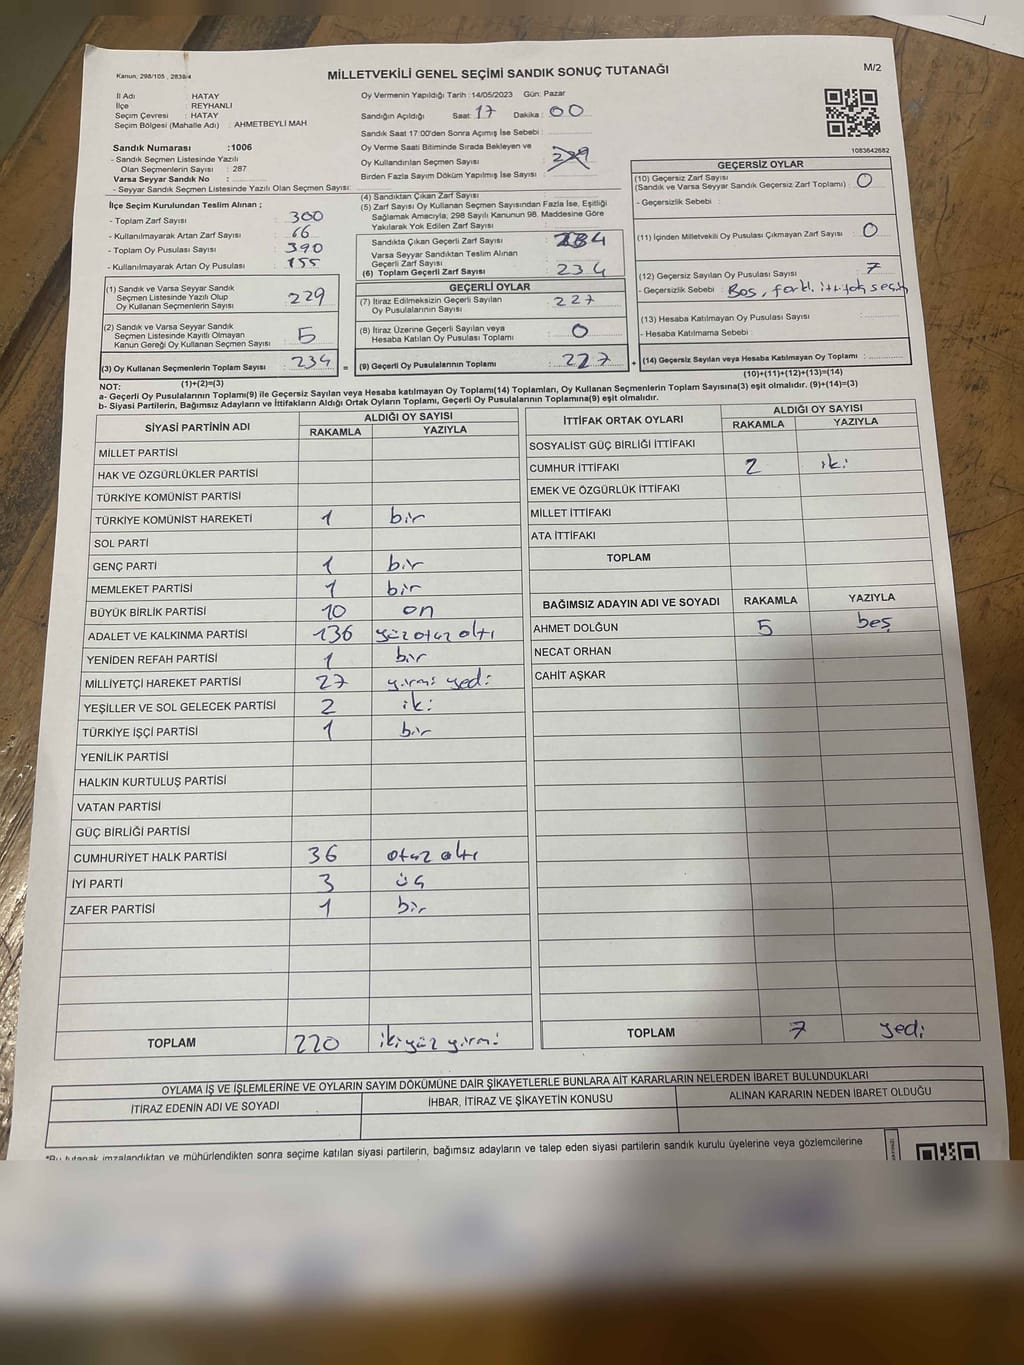 MİLLETVEKİLİ GENEL SEÇİMİ SANDIK SONUÇ TUTANAĞI
M/2
Kanun: 298/105 , 2839/4
İl Adı : HATAY
İlçe : REYHANLI
Seçim Çevresi : HATAY
Seçim Bölgesi (Mahalle Adı) : AHMETBEYLİ MAH
Sandık Numarası :1006
- Sandık Seçmen Listesinde Yazılı
Olan Seçmenlerin Sayısı : 287
Varsa Seyyar Sandık No :
- Seyyar Sandık Seçmen Listesinde Yazılı Olan Seçmen Sayısı:
Oy Vermenin Yapıldığı Tarih :14/05/2023 Gün: Pazar
Sandığın Açıldığı Saat: 17 Dakika: 00
Sandık Saat 17:00'den Sonra Açımış İse Sebebi :
Oy Verme Saati Bitiminde Sırada Bekleyen ve
Oy Kullandırılan Seçmen Sayısı
Birden Fazla Sayım Döküm Yapılmış İse Sayısı :
1083642682
İlçe Seçim Kurulundan Teslim Alınan ;
- Toplam Zarf Sayısı 300
- Kullanılmayarak Artan Zarf Sayısı : 66
- Toplam Oy Pusulası Sayısı : 390
- Kullanılmayarak Artan Oy Pusulası : 155
(1) Sandık ve Varsa Seyyar Sandık
Seçmen Listesinde Yazılı Olup
Oy Kullanan Seçmenlerin Sayısı 229
(2) Sandık ve Varsa Seyyar Sandık
Seçmen Listesinde Kayıtlı Olmayan
Kanun Gereği Oy Kullanan Seçmen Sayısı 5
(3) Oy Kullanan Seçmenlerin Toplam Sayısı 234 =
(1)+(2)=(3)
(4) Sandıktan Çıkan Zarf Sayısı :
(5) Zarf Sayısı Oy Kullanan Seçmen Sayısından Fazla İse, Eşitliği
Sağlamak Amacıyla, 298 Sayılı Kanunun 98. Maddesine Göre
Yakılarak Yok Edilen Zarf Sayısı :
Sandıkta Çıkan Geçerli Zarf Sayısı : 234
Varsa Seyyar Sandıktan Teslim Alınan
Geçerli Zarf Sayısı
(6) Toplam Geçerli Zarf Sayısı : 234
GEÇERLİ OYLAR
(7) İtiraz Edilmeksizin Geçerli Sayılan
Oy Pusulalarının Sayısı : 227
(8) İtiraz Üzerine Geçerli Sayılan veya
Hesaba Katılan Oy Pusulası Toplamı : 0
(9) Geçerli Oy Pusulalarının Toplamı : 227 +
GEÇERSİZ OYLAR
(10) Geçersiz Zarf Sayısı
(Sandık ve Varsa Seyyar Sandık Geçersiz Zarf Toplamı) : 0
- Geçersizlik Sebebi :
(11) İçinden Milletvekili Oy Pusulası Çıkmayan Zarf Sayısı : 0
(12) Geçersiz Sayılan Oy Pusulası Sayısı : 7
- Geçersizlik Sebebi : Boş,
(13) Hesaba Katılmayan Oy Pusulası Sayısı :
- Hesaba Katılmama Sebebi :
(14) Geçersiz Sayılan veya Hesaba Katılmayan Oy Toplamı :
(10)+(11)+(12)+(13)=(14)
NOT:
a- Geçerli Oy Pusulalarının Toplamı(9) ile Geçersiz Sayılan veya Hesaba katılmayan Oy Toplamı(14) Toplamları, Oy Kullanan Seçmenlerin Toplam Sayısına(3) eşit olmalıdır. (9)+(14)=(3)
b- Siyasi Partilerin, Bağımsız Adayların ve İttifakların Aldığı Ortak Oyların Toplamı, Geçerli Oy Pusulalarının Toplamına(9) eşit olmalıdır.
SİYASİ PARTİNİN ADI ALDIĞI OY SAYISI
RAKAMLA YAZIYLA
MİLLET PARTİSİ
HAK VE ÖZGÜRLÜKLER PARTİSİ
TÜRKİYE KOMÜNİST PARTİSİ
TÜRKİYE KOMÜNİST HAREKETİ 1 bir
SOL PARTİ
GENÇ PARTİ 1 bir
MEMLEKET PARTİSİ 1 bir
BÜYÜK BİRLİK PARTİSİ 10 on
ADALET VE KALKINMA PARTİSİ 136 yüz otuz altı
YENİDEN REFAH PARTİSİ 1 bir
MİLLİYETÇİ HAREKET PARTİSİ 27 yirmi yedi
YEŞİLLER VE SOL GELECEK PARTİSİ 2 iki
TÜRKİYE İŞÇİ PARTİSİ 1 bir
YENİLİK PARTİSİ
HALKIN KURTULUŞ PARTİSİ
VATAN PARTİSİ
GÜÇ BİRLİĞİ PARTİSİ
CUMHURİYET HALK PARTİSİ 36 otuz altı
İYİ PARTİ 3 üç
ZAFER PARTİSİ 1 bir
TOPLAM 220 ikiyüz yirmi
İTTİFAK ORTAK OYLARI ALDIĞI OY SAYISI
RAKAMLA YAZIYLA
SOSYALİST GÜÇ BİRLİĞİ İTTİFAKI
CUMHUR İTTİFAKI 2 iki
EMEK VE ÖZGÜRLÜK İTTİFAKI
MİLLET İTTİFAKI
ATA İTTİFAKI
TOPLAM
BAĞIMSIZ ADAYIN ADI VE SOYADI RAKAMLA YAZIYLA
AHMET DOLĞUN 5 beş
NECAT ORHAN
CAHİT AŞKAR
TOPLAM 7 yedi
OYLAMA İŞ VE İŞLEMLERİNE VE OYLARIN SAYIM DÖKÜMÜNE DAİR ŞİKAYETLERLE BUNLARA AİT KARARLARIN NELERDEN İBARET BULUNDUKLARI
İTİRAZ EDENİN ADI VE SOYADI İHBAR, İTİRAZ VE ŞİKAYETİN KONUSU ALINAN KARARIN NEDEN İBARET OLDUĞU
*Bu tutanak imzalandıktan ve mühürlendikten sonra seçime katılan siyasi partilerin, bağımsız adayların ve talep eden siyasi partilerin sandık kurulu üyelerine veya gözlemcilerine